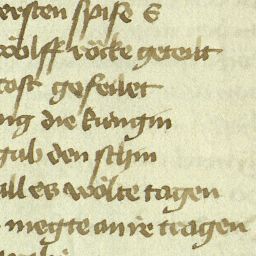 ersten spise E
wölff röcke geteilt
cost gefeilet
ng die kungin
gab den schin
all es wölte tagen
megte an ir tragen